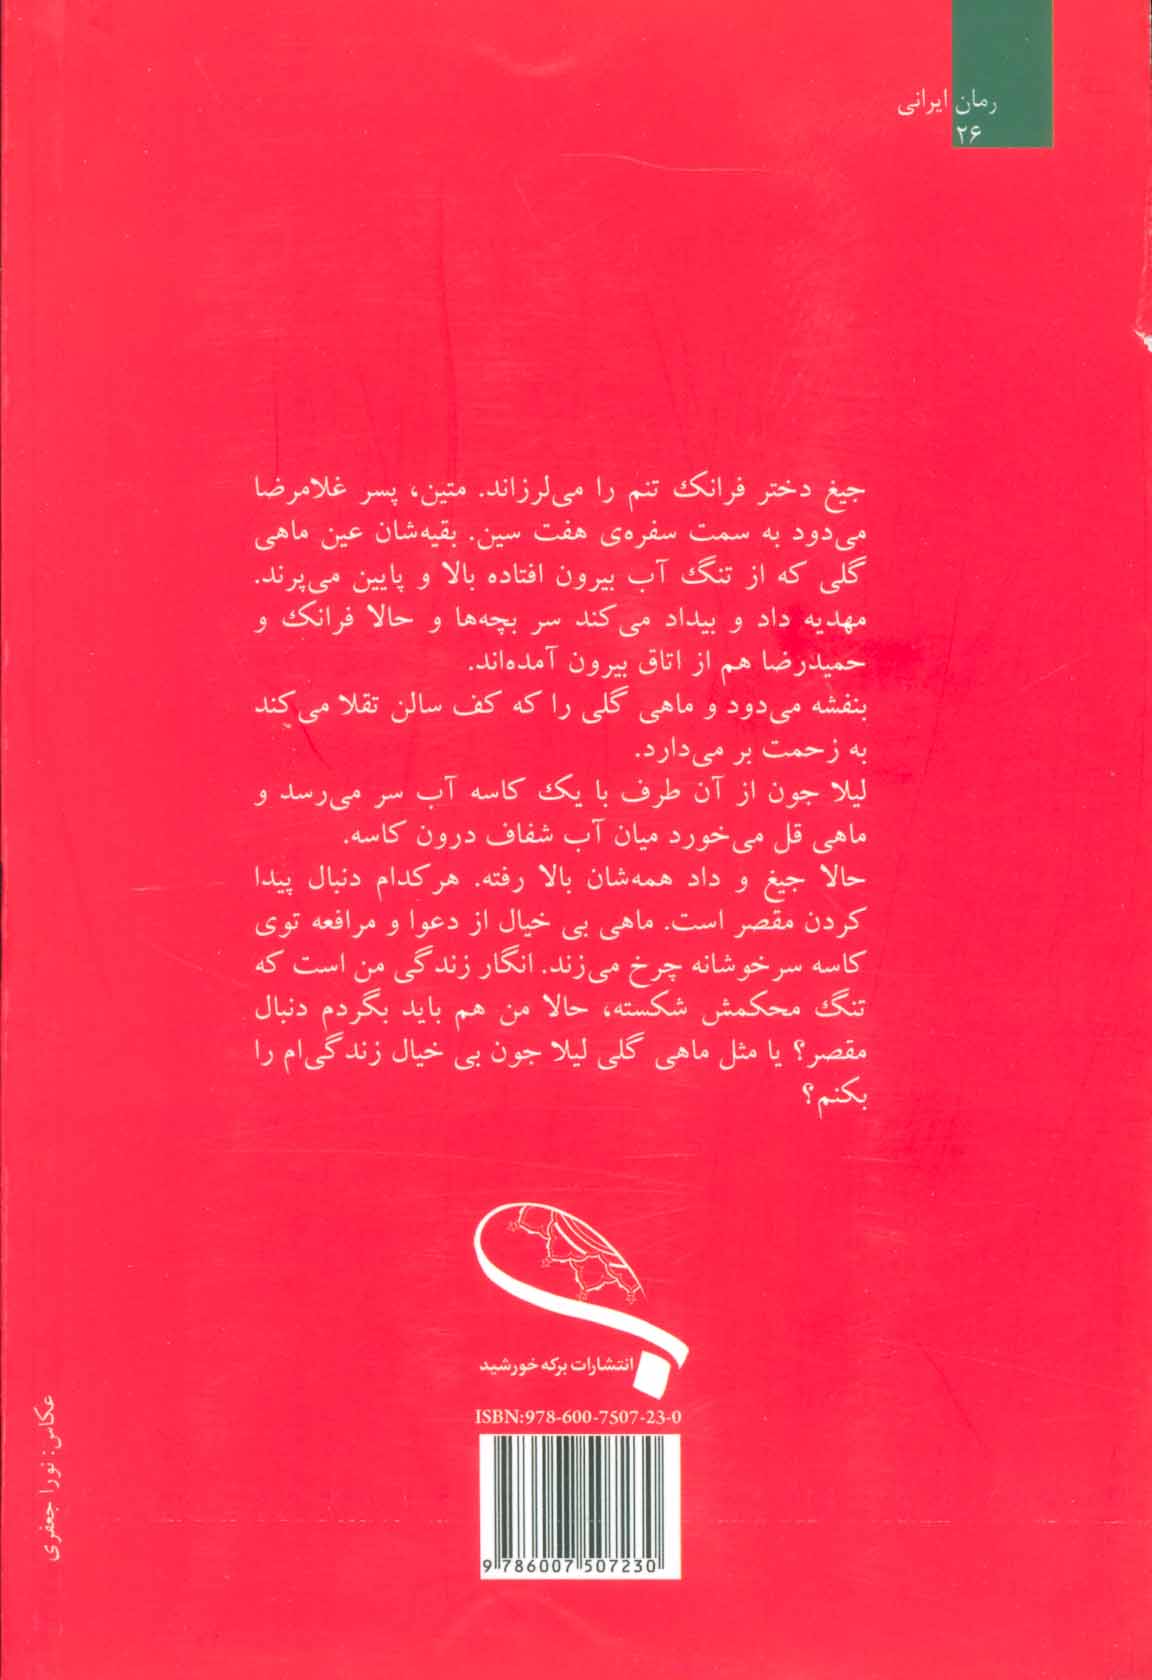 رمان ایرانی
۲۶
جیغ دختر فرانک تنم را می‌لرزاند. متین، پسر غلامرضا
می‌دود به سمت سفره‌ی هفت سین. بقیه‌شان عین ماهی
گلی که از تنگ آب بیرون افتاده بالا و پایین می‌پرند.
مهدیه داد و بیداد می‌کند سر بچه‌ها و حالا فرانک و
حمیدرضا هم از اتاق بیرون آمده‌اند.
بنفشه می‌دود و ماهی گلی را که کف سالن تقلا می‌کند
به زحمت بر می‌دارد.
لیلا جون از آن طرف با یک کاسه آب سر می‌رسد و
ماهی قل می‌خورد میان آب شفاف درون کاسه.
حالا جیغ و داد همه‌شان بالا رفته. هرکدام دنبال پیدا
کردن مقصر است. ماهی بی خیال از دعوا و مرافعه توی
کاسه سرخوشانه چرخ می‌زند. انگار زندگی من است که
تنگ محکمش شکسته، حالا من هم باید بگردم دنبال
مقصر؟ یا مثل ماهی گلی لیلا جون بی خیال زندگی‌ام را
بکنم؟
انتشارات برکه خورشید
ISBN:978-600-7507-23-0
9 786007 507230
عکاس: نورا جعفری